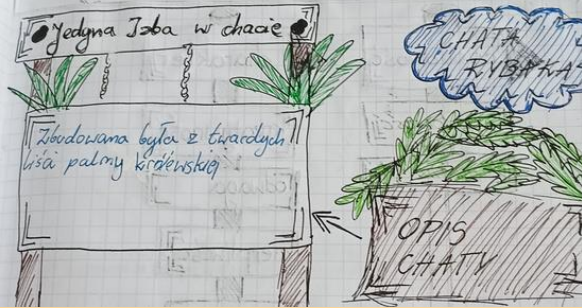 Jedyna Izba w chacie
CHATA
RYBAKA
Zbudowana była z twardych
liści palmy królewskiej
OPIS
CHATY